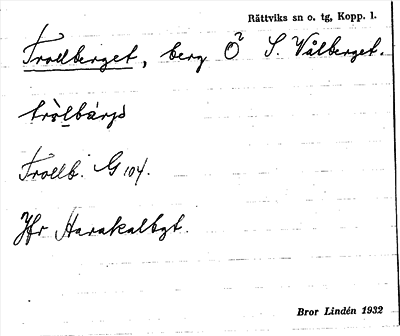 Rättviks sn o. tg, Kopp. l.
Trollberget, berg Ö S. Vålberget.
Trollb. G 104.
Jfr Harakalbgt.
Bror Lindén 1932